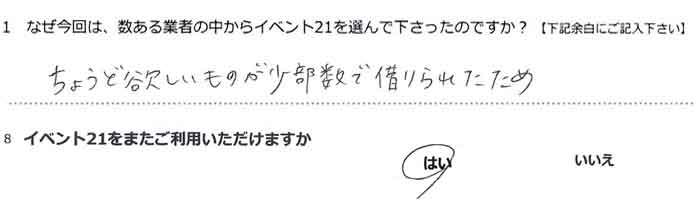 1 なぜ今回は、数ある業者の中からイベント21を選んで下さったのですか？【下記余白にご記入下さい】
ちょうど欲しいものが少部数で借りられたため
8 イベント21をまたご利用いただけますか
はい いいえ